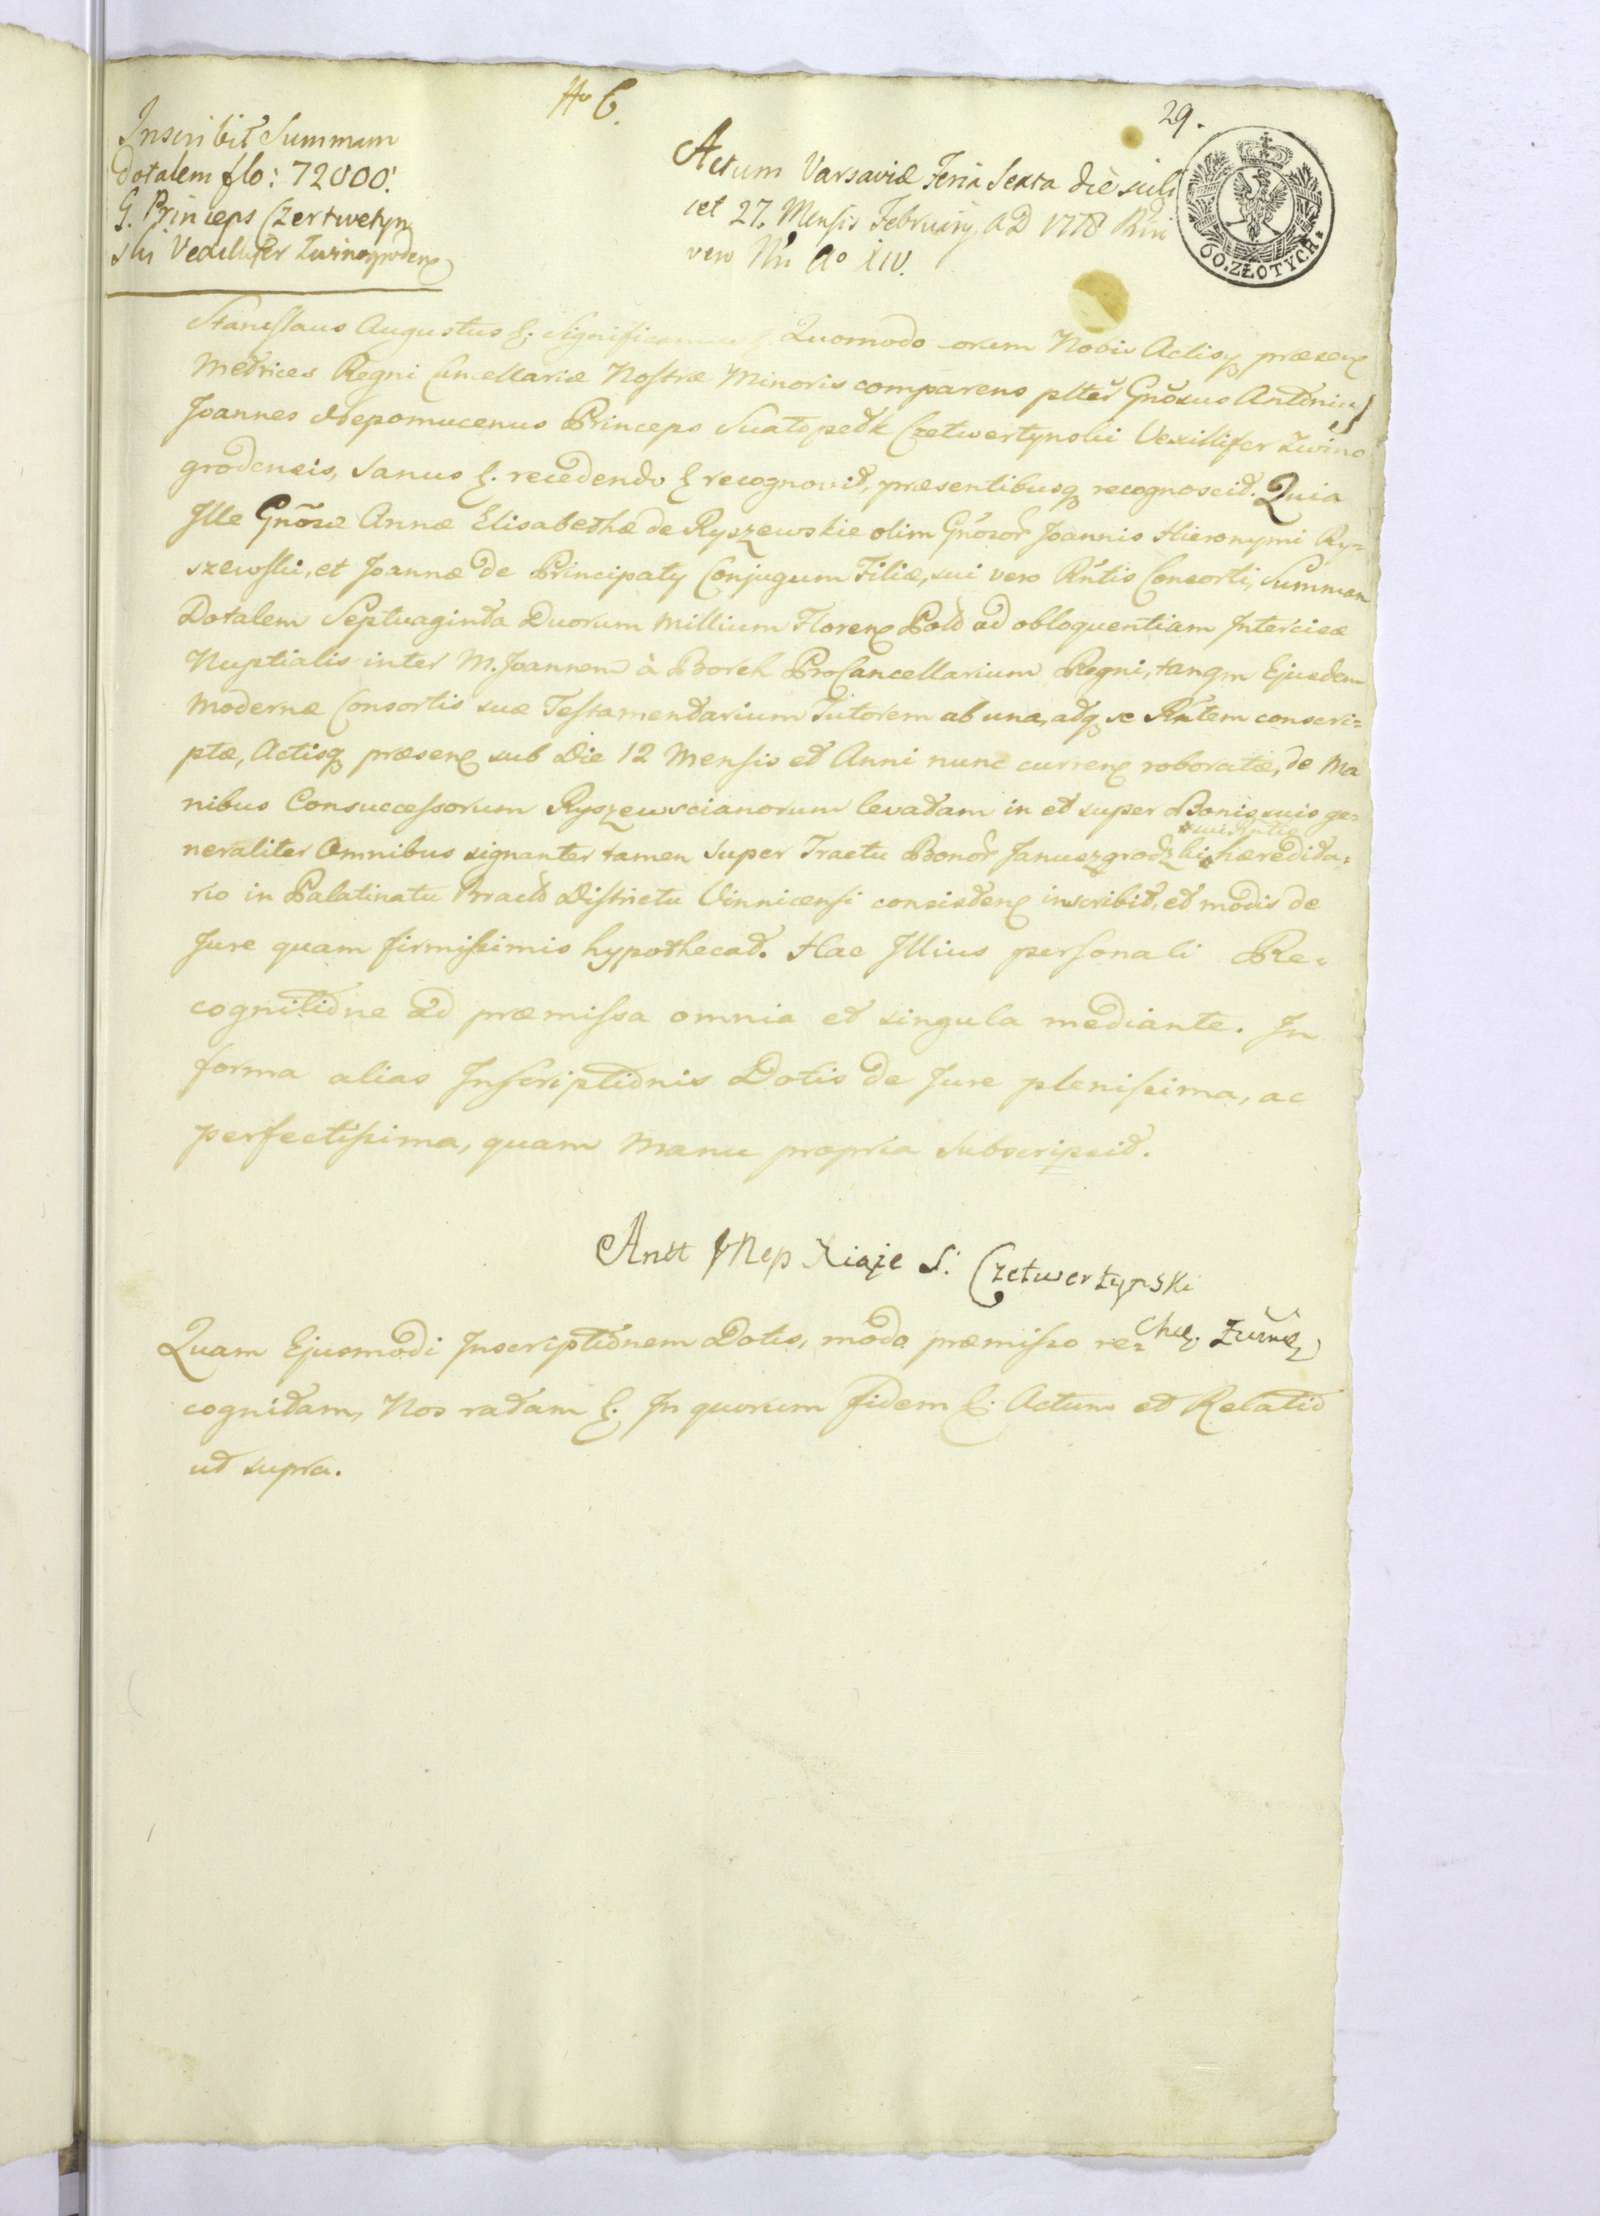 29.
Inscribit Summam
Dotalem flo: 72000.
G. Princeps Czertwetyn
ski Vexillifer Zwinogrodenς
Actum Varsaviæ Feria Sexta die scili
cet 27. Mensis Februarij AD 1778 Rñi
vero Nri Aº XIV.
60. ZŁOTYCH.
Stanislaus Augustus &. Significamus &. Quomodo coram Nobis Actisqꝫ præsenς
Metrices Regni Cancellariæ Nostræ Minoris comparens plter Gnõsus Antonius
Joannes Nepomucenus Princeps Suatopedk Czetwertynski Vexillifer Zwino
grodensis, Sanus &. recedendo & recognovit, præsentibusqꝫ recognoscit. Quia
Ille Gnõsæ Annæ Elisabethæ de Ryszewskie olim Gnõsor Joannis Hieronymi Ry=
szewski, et Joannæ de Principaty Conjugum Filiæ, sui vero Rñtis Consorti, Summam
Dotalem Septuaginta Duorum Millium Florenς Pold ad obloquentiam Intercisæ
Nuptialis inter M. Joannem à Borch ProCancellarium Regni, tanqm Ejusdem
Modernæ Consortis suæ Testamentarium Tutorem ab una, atqꝫ se Rñtem conscri=
ptæ, Actisqꝫ præsenς sub Die 12 Mensis et Anni nunc currenς roboratæ, de Ma
nibus Consuccessorum Ryszewscianorum levatam in et super Bonis suis ge=
neraliter Omnibus signanter tamen super Tractu Bonor Januszgrodzki hæredita=
rio in Palatinatu Bracł Districtu Vinnicensi consistenς inscribit, et modis de
Jure quam firmissimis hypothecat. Hac Illius personali Re=
cognitione ad præmissa omnia et singula mediante. In
forma alias Inscriptionis Dotis de Jure plenissima, ac
perfectissima, quam Manu propria subscripsit.
Antt JNep Xiąże S: Czetwertynski
Chą. Zwinς
Quam Ejusmodi Inscriptionem Dotis, modo præmisso re=
cognitam, Nos ratam &. In quorum fidem &. Actum et Relatio
ut supra.